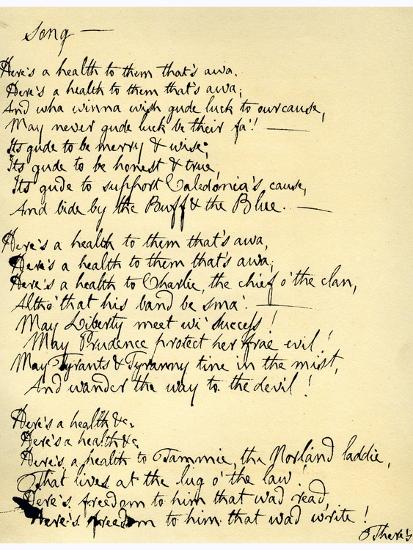 Song —
Here's a health to them that's awa,
Here's a health to them that's awa;
And wha winna wish gude luck to our cause,
May never gude luck be their fa'! —
Its gude to be merry & wise;
Its gude to be honest & true,
Its gude to support Caledonia's cause,
And bide by the Buff & the Blue. —
Here's a health to them that's awa,
Here's a health to them that's awa;
Here's a health to Charlie, the chief o' the clan,
Altho' that his band be sma'. —
May Liberty meet wi' success!
May Prudence protect her frae evil!
May Tyrants & Tyranny tine in the mist,
And wander the way to the devil!
Here's a health &c.
Here's a health &c
Here's a health to Tammie, the Norland laddie,
That lives at the lug o' the law!
Here's freedom to him that wad read,
Here's freedom to him that wad write!
There's